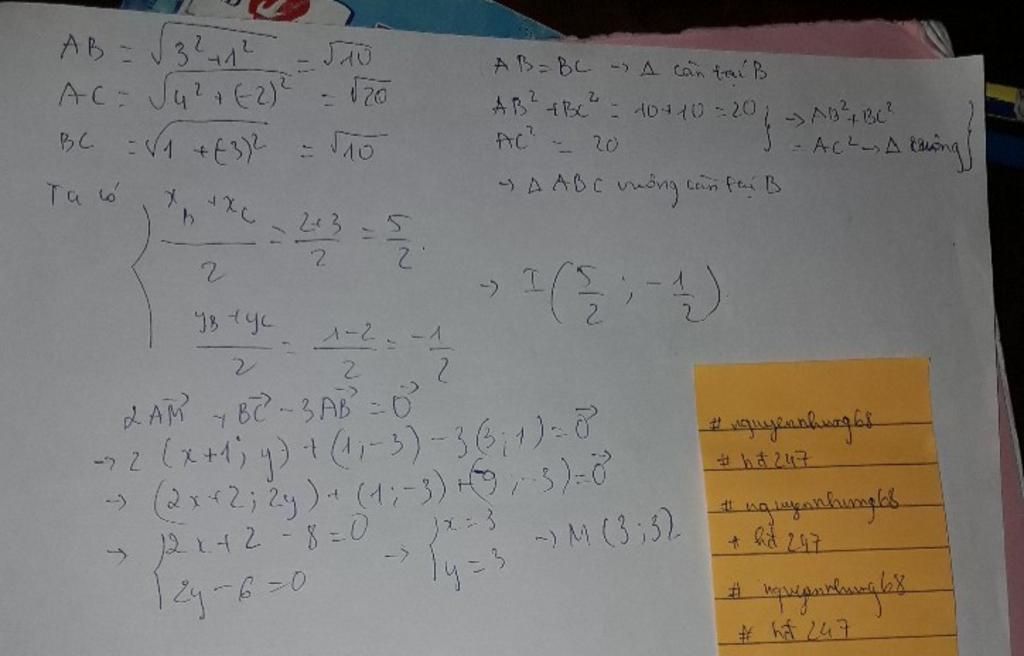 AB = √(3² + 1²) = √10
AC = √(4² + (-2)²) = √20
BC = √(1 + (-3)²) = √10
AB = BC → Δ cân tại B
AB² + BC² = 10 + 10 = 20
AC² = 20
} → AB² + BC²
= AC² → Δ vuông }
→ Δ ABC vuông cân tại B
Ta có
{ (x_B + x_C)/2 = (2+3)/2 = 5/2.
(y_B + y_C)/2 = (1-2)/2 = -1/2
→ I(5/2 ; -1/2)
2AM⃗ + BC⃗ - 3AB⃗ = 0⃗
→ 2 (x+1; y) + (1; -3) - 3(3; 1) = 0⃗
→ (2x+2; 2y) + (1; -3) + (-9; -3) = 0⃗
→ { 2x + 2 - 8 = 0
2y - 6 = 0
→ { x = 3
y = 3
→ M (3; 3)
# nguyennhung68
# hđ 247
# nguyennhung68
# hđ 247
# nguyennhung68
# hđ 247